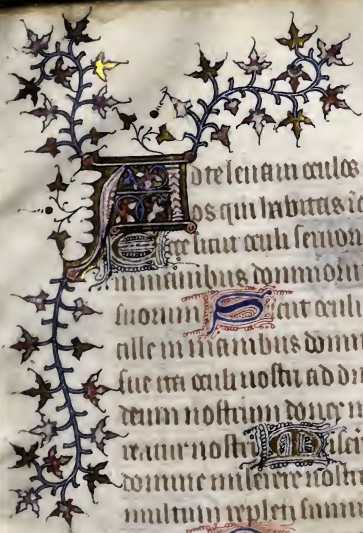 Ad te levavi oculos
os qui habitas
Ecce sicut oculi servor
in manibus dominoru
suorum Sicut oculi
cille in manibus domi
sue ita oculi nostri ad do
deum nostrum donec m
reatur nostri Misere
domine miserere nostri
multum repleti sumu